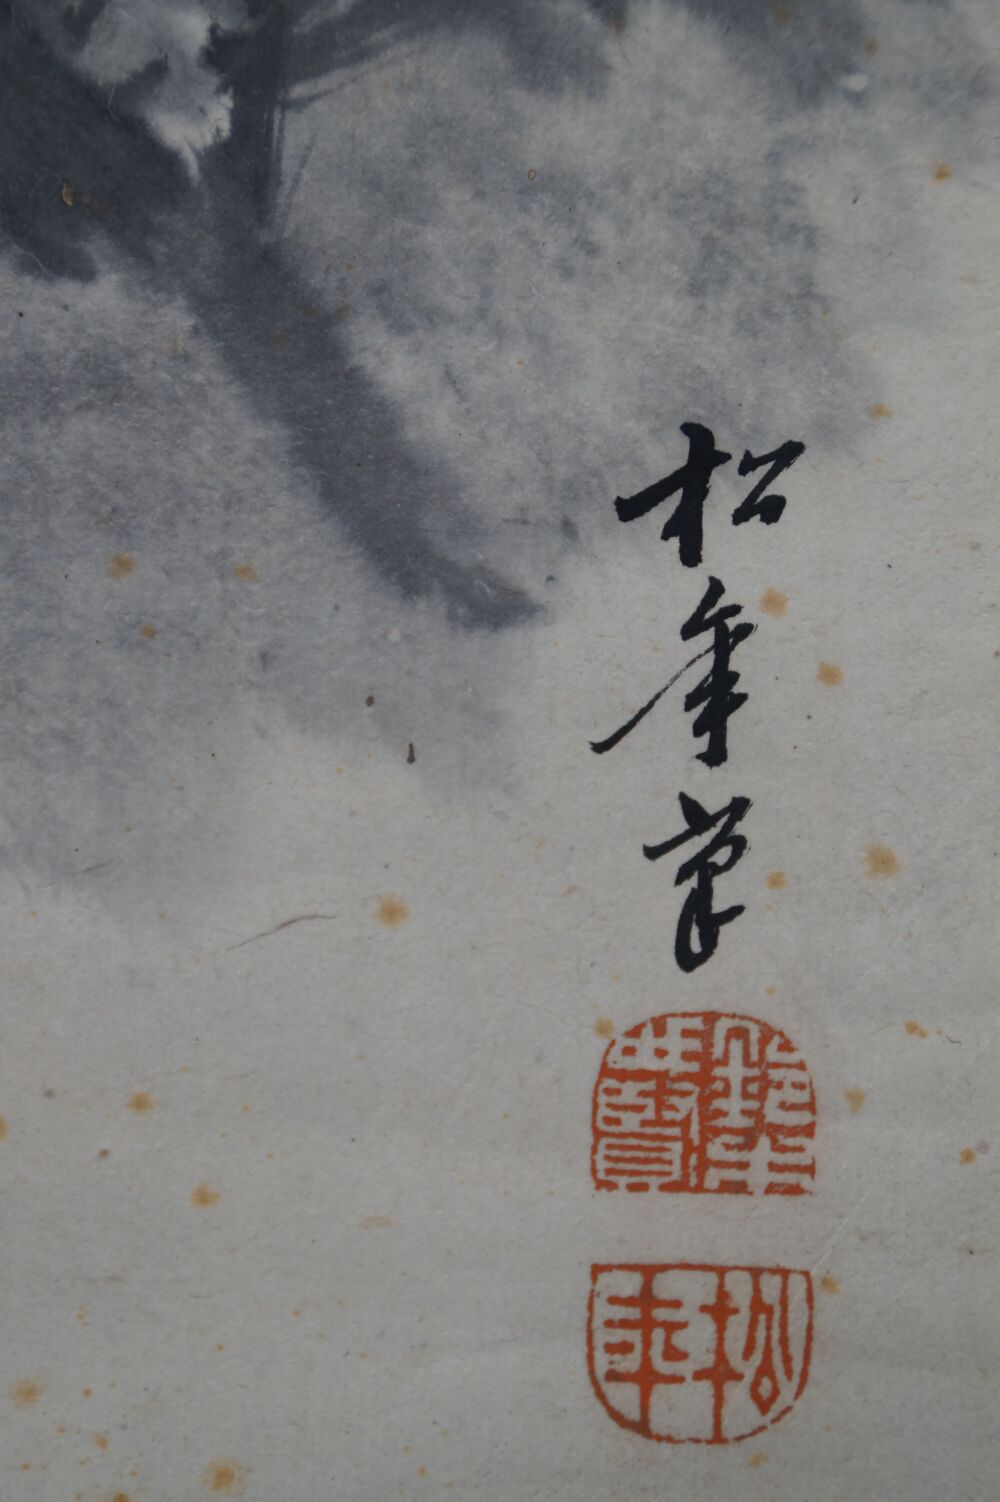 松年筆
松年